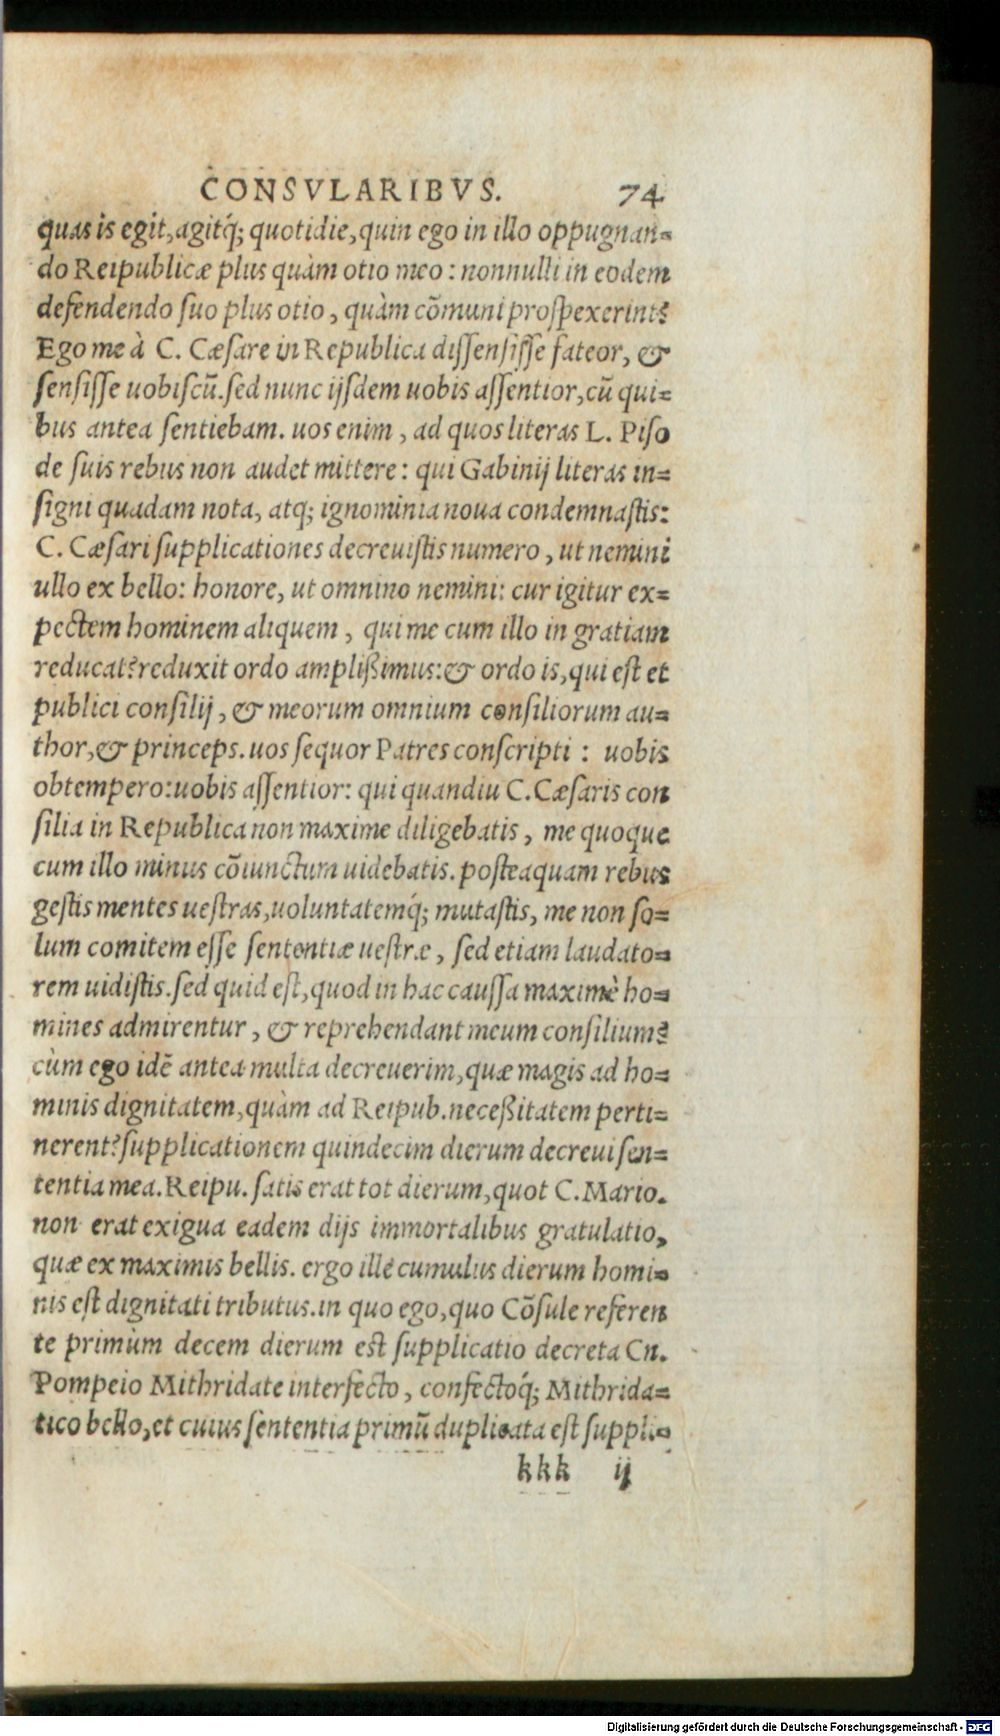 CONSVLARIBVS. 74
quas is egit, agitq́; quotidie, quin ego in illo oppugnan=
do Reipublicæ plus quàm otio meo: nonnulli in eodem
defendendo suo plus otio, quàm cõmuni prospexerint?
Ego me à C. Cæsare in Republica dissensisse fateor, &
sensisse uobiscũ. sed nunc ijsdem uobis assentior, cũ qui=
bus antea sentiebam. uos enim, ad quos literas L. Piso
de suis rebus non audet mittere: qui Gabinij literas in=
signi quadam nota, atq; ignominia noua condemnastis:
C. Cæsari supplicationes decreuistis numero, ut nemini
ullo ex bello: honore, ut omnino nemini: cur igitur ex=
pectem hominem aliquem, qui me cum illo in gratiam
reducat? reduxit ordo amplißimus: & ordo is, qui est et
publici consilij, & meorum omnium consiliorum au=
thor, & princeps. uos sequor Patres conscripti: uobis
obtempero: uobis assentior: qui quandiu C. Cæsaris con
silia in Republica non maxime diligebatis, me quoque
cum illo minus cõiunctum uidebatis. posteaquam rebus
gestis mentes uestras, uoluntatemq́; mutastis, me non so=
lum comitem esse sententiæ uestræ, sed etiam laudato=
rem uidistis. sed quid est, quod in hac caussa maximè ho=
mines admirentur, & reprehendant meum consilium?
cùm ego idẽ antea multa decreuerim, quæ magis ad ho=
minis dignitatem, quàm ad Reipub. neceßitatem perti=
nerent? supplicationem quindecim dierum decreui sen=
tentia mea. Reipu. satis erat tot dierum, quot C. Mario.
non erat exigua eadem dijs immortalibus gratulatio,
quæ ex maximis bellis. ergo ille cumulus dierum homi=
nis est dignitati tributus. in quo ego, quo Cõsule referen
te primùm decem dierum est supplicatio decreta Cn.
Pompeio Mithridate interfecto, confectoq́; Mithrida=
tico bello, et cuius sententia primũ duplicata est suppli=
kkk ij
Digitalisierung gefördert durch die Deutsche Forschungsgemeinschaft - DFG